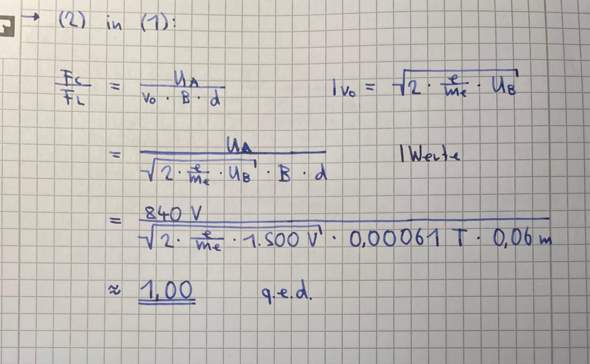 → (2) in (1):
Fc/FL = UA/(v₀ · B · d) | v₀ = √(2 · e/me · UB)
= UA/(√(2 · e/me · UB) · B · d) | Werte
= 840 V/(√(2 · e/me · 1.500 V) · 0,00061 T · 0,06 m)
≈ 1,00 q.e.d.